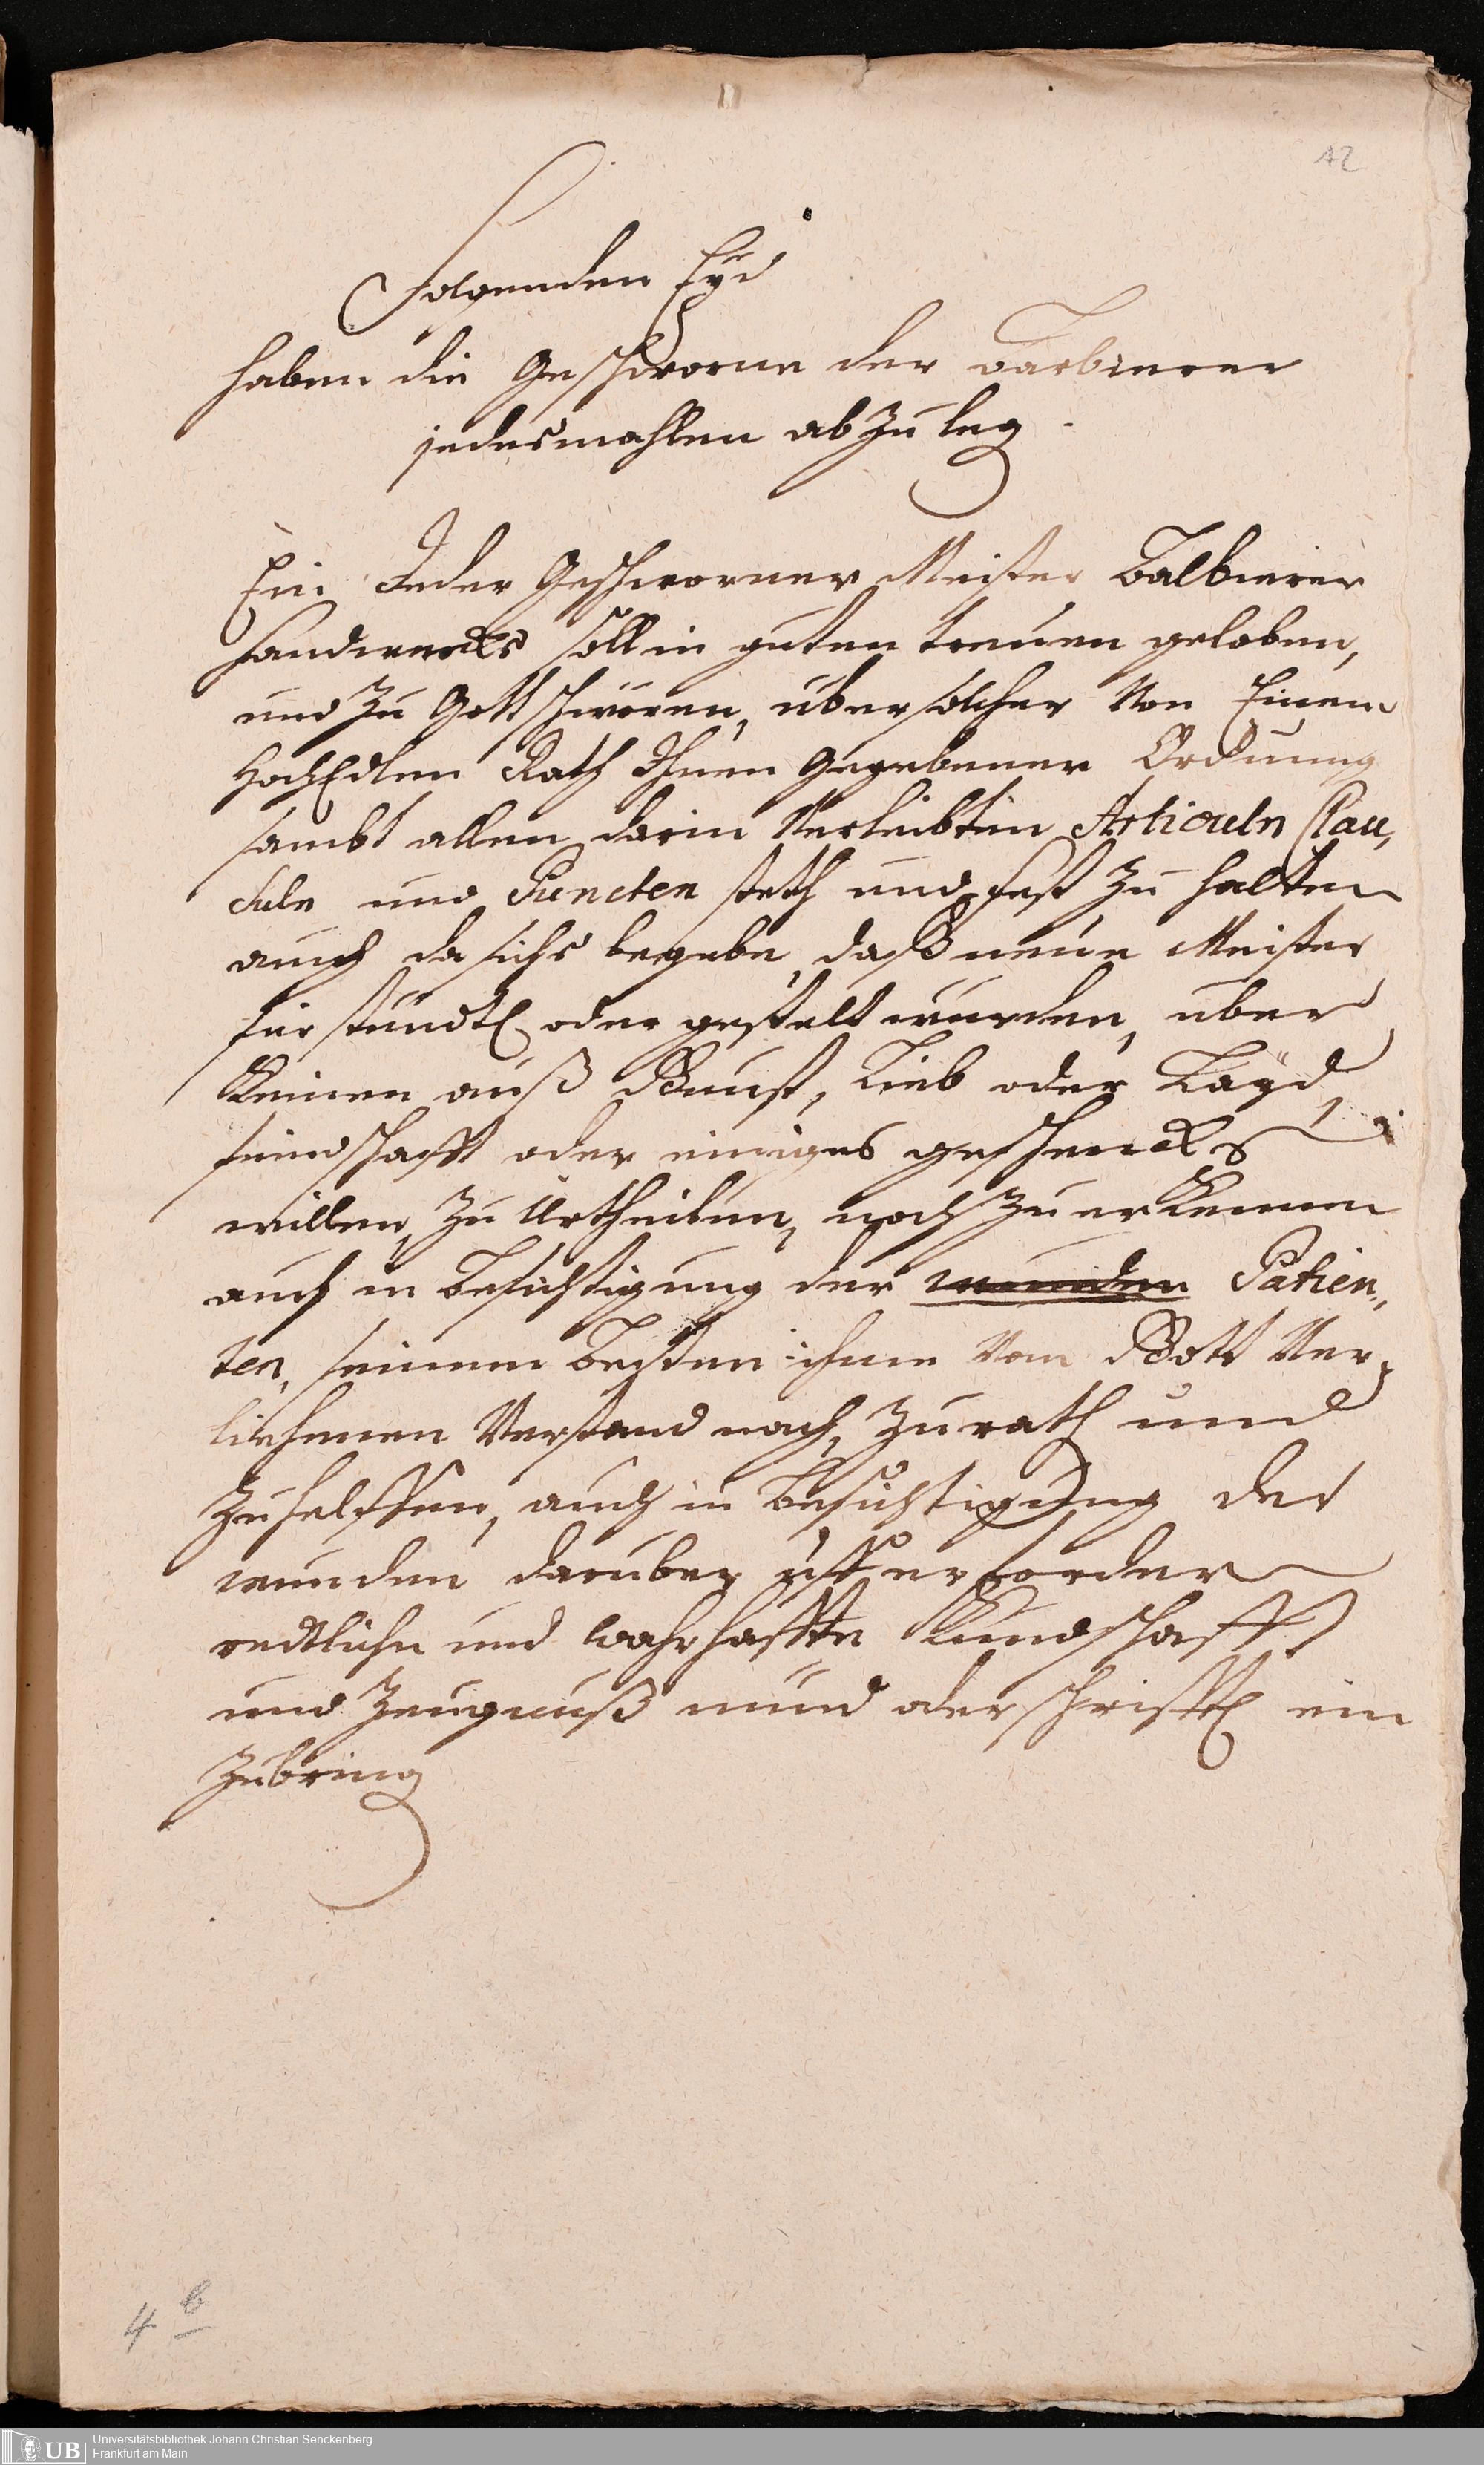 42
Folgenden Eyd
haben die Geschworne der Barbierer
jedesmahlen ab Zu leg
Ein Jeder Geschworner Meister Balbierer
Handwercks soll in guten treuen geloben,
und Zu Gott schwören, über solcher Von Einem
HochEdlen Rath Ihnen Gegebener Ordnung
sambt allen darin Verleibten Articuln Clau,
suln und Puncten steth und fest Zu halten
auch da sichs begebe, daß neue Meister
für stündt oder gestelt würden, über
Keinen auß Gunst, Lieb oder Layd,
feindschafft oder einiges geschencks
willen, Zu Urtheilen, noch Zu erkennen
auch in besichtigung der wunden Patien,,
ten, seinem besten ihme Von Gott Ver,
liehenen Verstand nach, Zu rath und
Zu helffen, auch in besichtigung der
wunden darüber uff erfordern
redtliche und wahrhaffte Kundschafft
und Zeugnuß mund oder schrifftl ein
Zubring
4 b
UB
Universitätsbibliothek Johann Christian Senckenberg
Frankfurt am Main